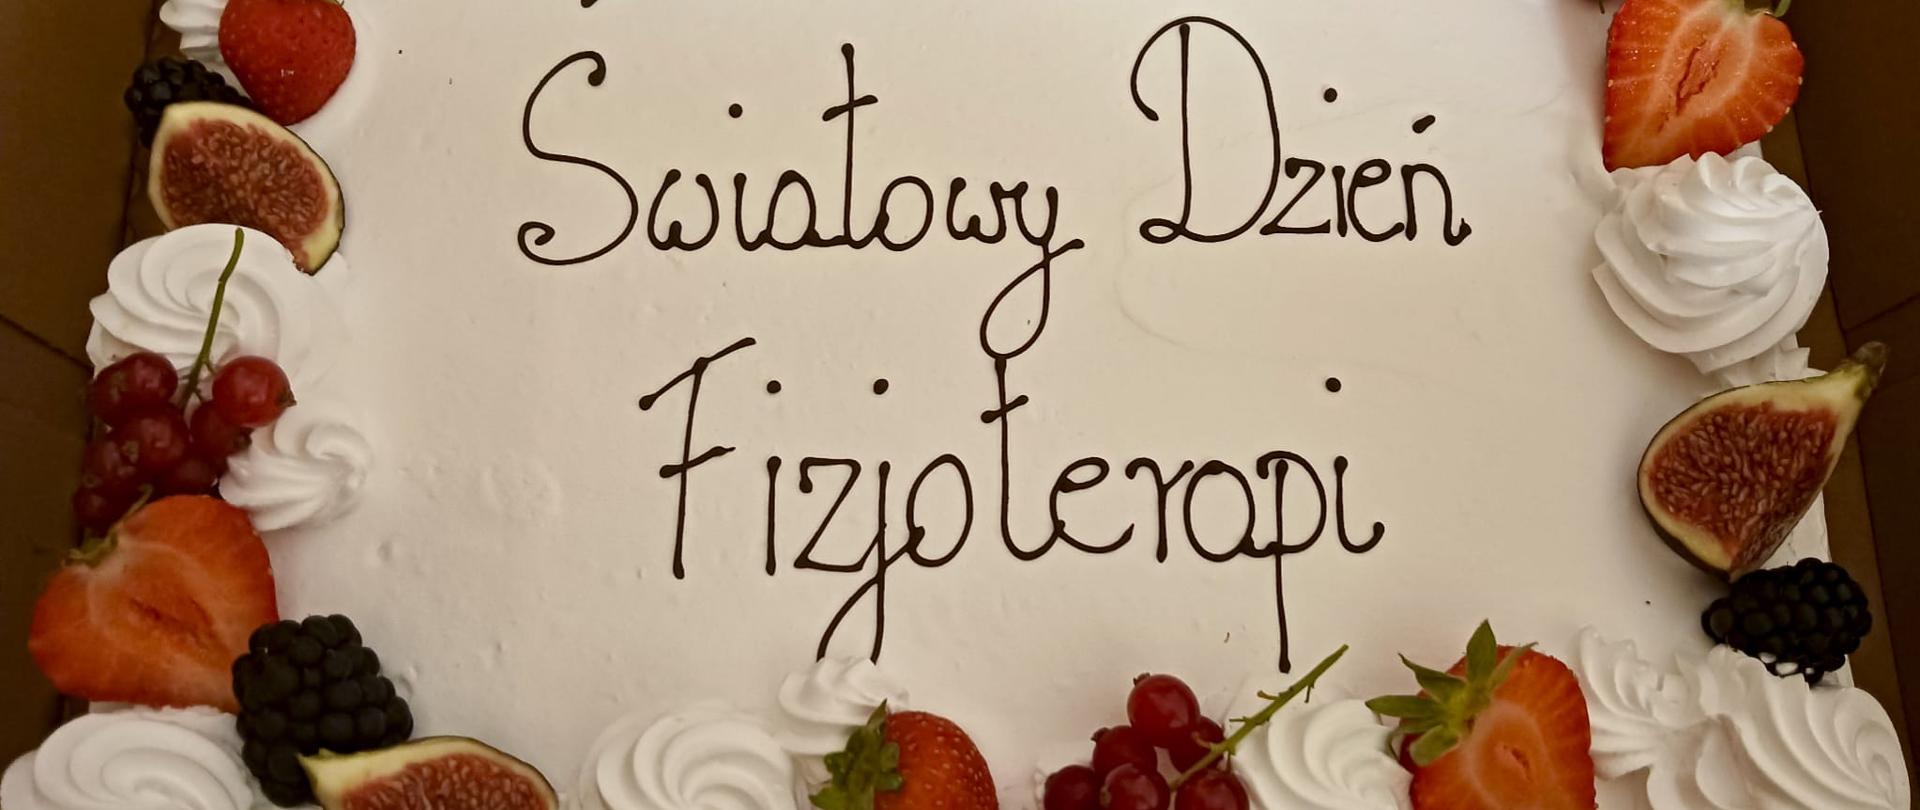 Światowy Dzień
Fizjoterapi